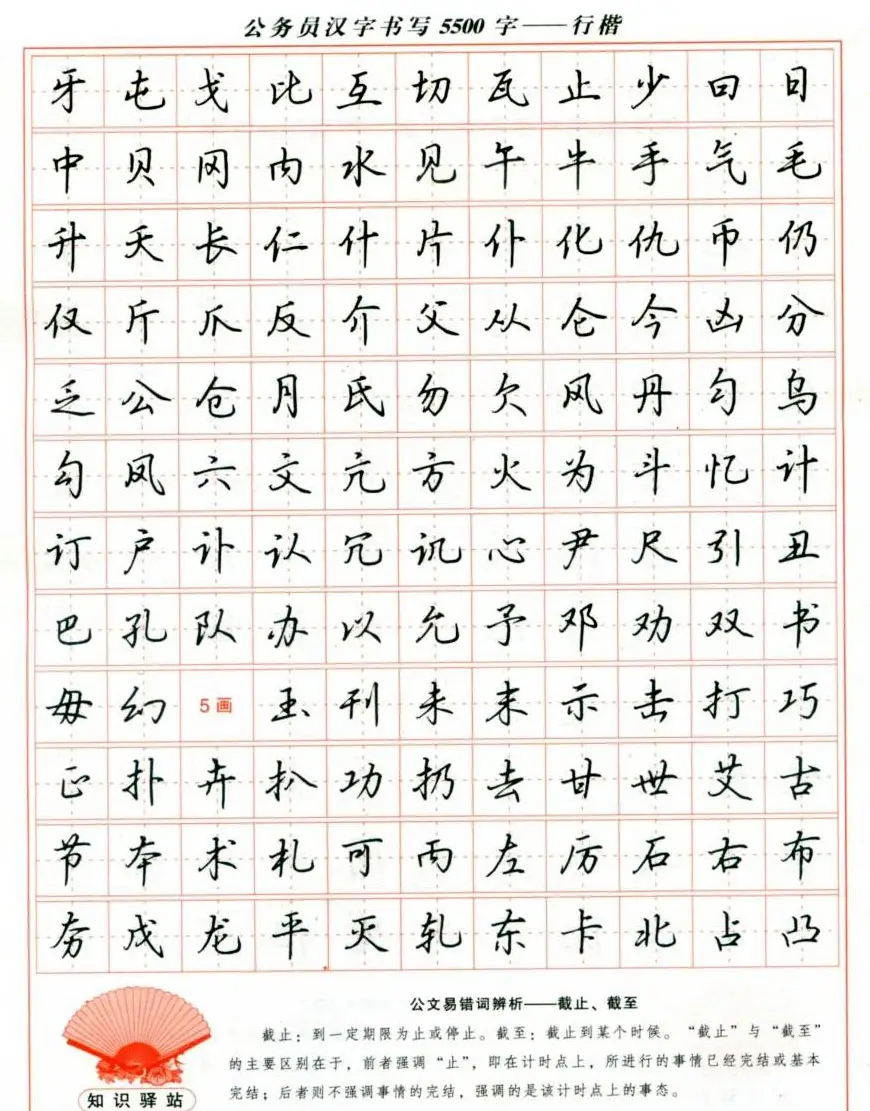 公务员汉字书写5500字——行楷
牙屯戈比互切瓦止少曰日
中贝冈内水见午牛手气毛
升夭长仁什片仆化仇币仍
仅斤爪反介父从仑今凶分
乏公仓月氏勿欠风丹匀乌
勾凤六文亢方火为斗忆计
订户讣认冗讥心尹尺引丑
巴孔队办以允予邓劝双书
毋幻5画玉刊未末示击打巧
正扑卉扒功扔去甘世艾古
节本术札可丙左厉石右布
夯戊龙平灭轧东卡北占凸
公文易错词辨析——截止、截至
截止：到一定期限为止或停止。截至：截止到某个时候。“截止”与“截至”
的主要区别在于，前者强调“止”，即在计时点上，所进行的事情已经完结或基本
完结；后者则不强调事情的完结，强调的是该计时点上的事态。
知识驿站